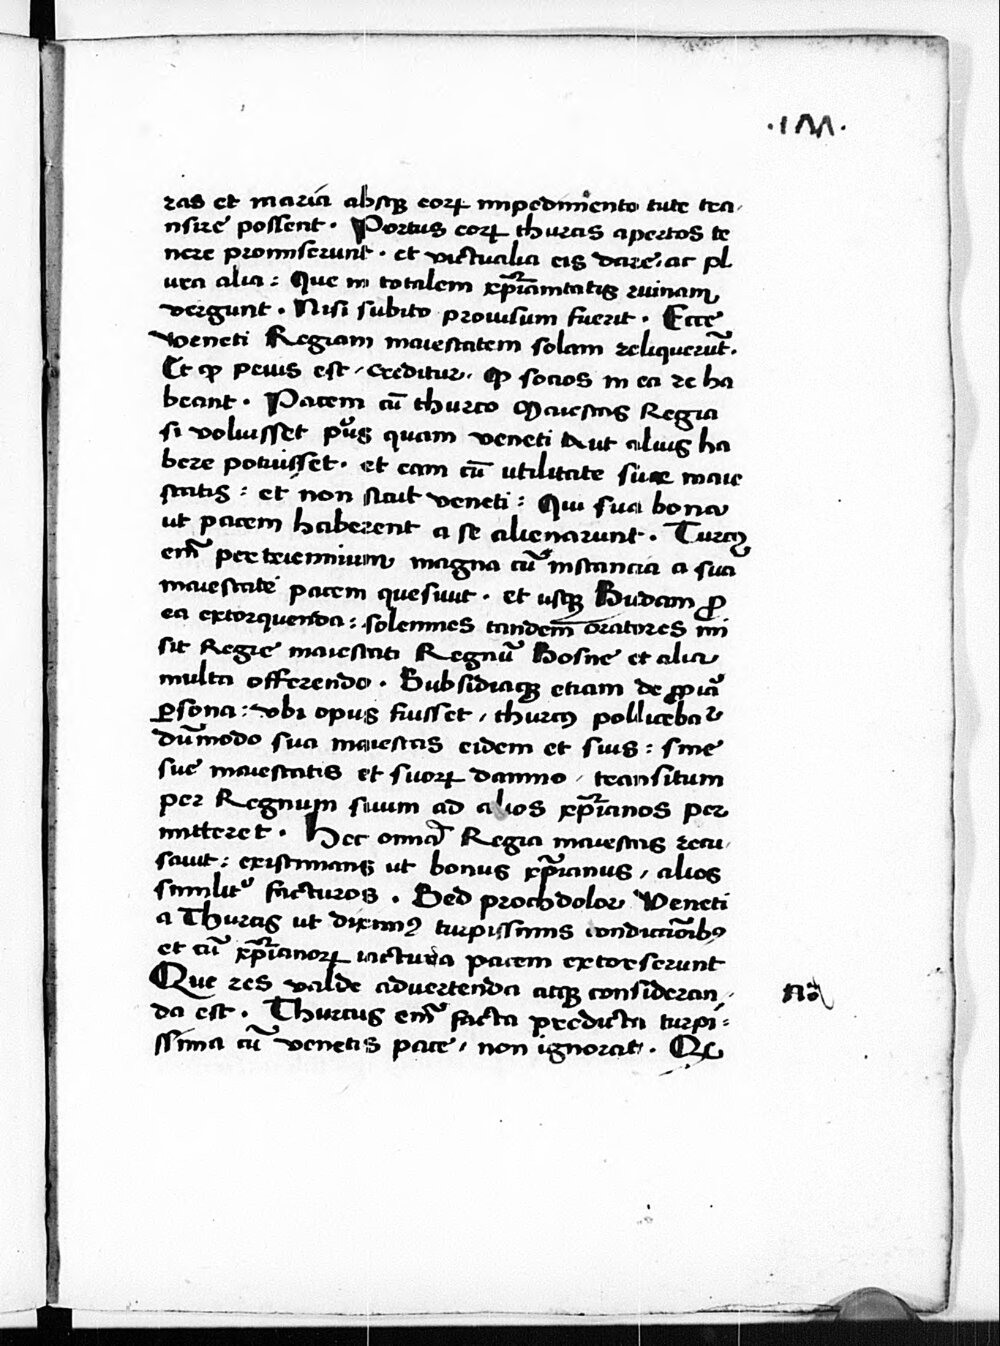 ras et maria absqꝫ eoꝝ impedimento tute tra
nsire possent. Portus eoꝝ thurcis apertos te
nere promiserunt. et victualia eis dare, ac pl
ura alia: Que in totalem xp̄ianitatis ruinam
vergunt. Nisi subito prouisum fuerit. Ecce
veneti Regiam maiestatem solam reliquerūt.
Et qꝫ peius est, creditur, qꝫ socios in ea re ha
beant. Pacem cū thurco Maiestas Regia
si voluisset pus quam veneti aut alius ha
bere potuisset. et eam cū utilitate sue maie
statis: et non sicut veneti: Qui sua bona
ut pacem haberent a se alienarunt. Turcꝰ
enī per triennium magna cū instancia a sua
maiestate pacem quesiuit. et usqꝫ Budam ꝓ
ea extorquenda: solennes tandem oratores mi
sit Regie maiestati Regnū Bosne et alia
multa offerendo. Subsidiaqꝫ etiam de ꝓpia
ꝑsona: vbi opus fuisset, thurcꝰ pollicebaꝛ
dūmodo sua maiestas eidem et suis: sine
sue maiestatis et suoꝝ damno, transitum
per Regnum suum ad alios xp̄ianos per
mitteret. Hec omnia Regia maiestas recu
sauit: existimans ut bonus xp̄ianus, alios
similit facturos. Sed prochdolor Veneti
a Thurcis ut diximꝰ turpissimis condicionibꝰ
et cū xp̄ianoꝝ iactura pacem extorserunt
Que res valde aduertenda atqꝫ consideran
da est. Thurcus enī facta predicta turpi
ssima cū venetis pace, non ignorat. Qe